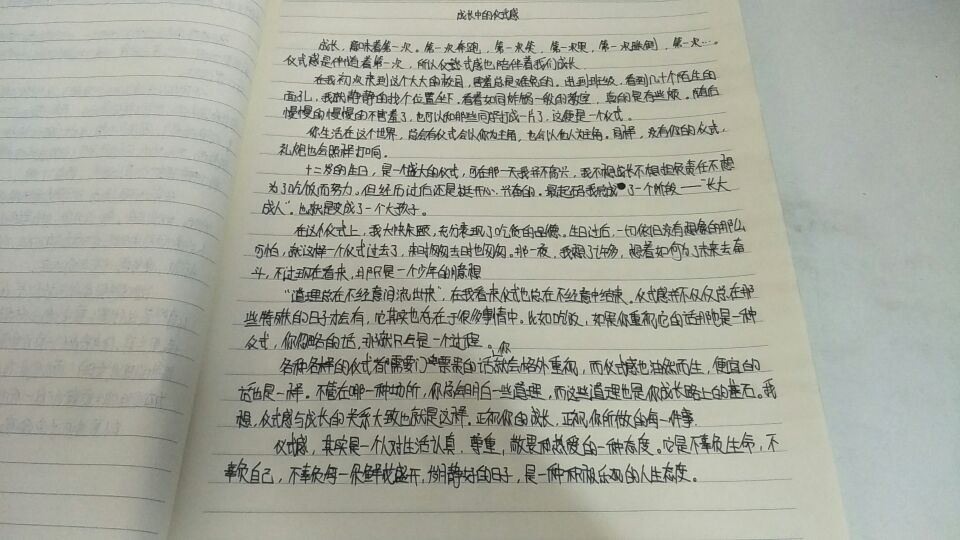 成长中的仪式感
成长，意味着第一次。第一次奔跑，第一次笑，第一次哭，第一次跌倒，第一次…。
仪式感是伴随着第一次，所以仪式感也陪伴着我们成长
在我初次来到这个大大的校园，害羞总是难免的。进到班级，看到几十个陌生的
面孔，我静静的找个位置坐下。看着如同牢笼一般的教室，真的是有些烦。随后
慢慢的慢慢的不害羞了，也可以和那些同学打成一片了，这便是一个仪式。
你生活在这个世界，总会有仪式会以你为主角，也会以他人为主角。同样，没有你的仪式，
礼炮也会照样打响。
十二岁的生日，是一个盛大的仪式，可在那一天我并不高兴，我不想成长不想担负责任不想
为了吃饭而努力。但经历过后还是挺开心、兴奋的。最起码我完成了一个阶段——“长大
成人”。也就是变成了一个大孩子。
在这个仪式上，我大快朵颐，充分表现了吃货的品德。生日过后，一切依旧没有想象的那么
可怕，就这样一个仪式过去了，来时匆匆去日也匆匆。那一夜，我想了许多，想着如何为了未来去奋
斗，不过现在看来，那只是一个少年的臆想
“道理总在不经意间流出来”，在我看来仪式也总在不经意中结束。仪式感并不仅仅总在那
些特殊的日子才会有，它其实也存在于很多事情中。比如吃饭，如果你重视它的话那他是一种
仪式，你忽略的话，那就只是一个过程。
各种各样的仪式有需要门票票的话你就会格外重视，而仪式感也油然而生，便宜的
话也是一样。不管在哪一种场所，你总会明白一些道理，而这些道理也是你成长路上的基石。我
想，仪式感与成长的关系大致也就是这样。正视你的成长，正视你所做的每一件事.
仪式感，其实是一个人对生活认真，尊重，敬畏和热爱的一种态度。它是不辜负生命，不
辜负自己，不辜负每一朵鲜花盛开，岁月静好的日子，是一种积极乐观的人生态度。